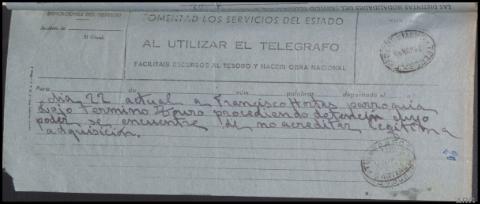 INDICACIONES DEL SERVICIO
FOMENTAD LOS SERVICIOS DEL ESTADO
AL UTILIZAR EL TELEGRAFO
FACILITAIS RECURSOS AL TESORO Y HACEIS OBRA NACIONAL
Para de núm palabras depositado el
dia 22 actual a Francisco Hortas parroquia
procediendo detencion cuyo
poder se encuentre de no acreditar legitima
adquisicion.